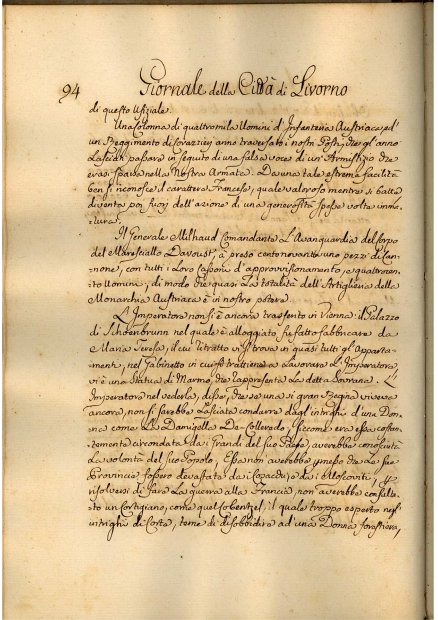 94 Giornale della Città di Livorno
di questo Ufiziale.
Una Colonna di quattromila Uomini d'Infanteria Austriaca, ed
un Reggimento di Corazzieri anno traversato i nostri Posti, che gl'anno
Lasciati passare in seguito di una falsa voce di un'Armistizio che
erasi sparsa nella Nostra Armata. Da una tale estrema facilità
ben si riconosce il carattere Francese, quale valoroso mentre si batte
diventa poi fuori dell'azione di una generosità spesse volte imma-
tura.
Il Generale Milhaud Comandante L'Avanguardia del Corpo
del Maresciallo Davoust, à preso centonovantuno pezzi di Can-
none, con tutti i Loro Cassoni d'approvvisionamento, e quattrocen-
to Uomini, di modo che quasi La totalità dell'Artiglieria della
Monarchia Austriaca è in nostro potere.
L'Imperatore non si è ancora trasferito in Vienna: il Palazzo
di Schoenbrunn nel quale è alloggiato fu fatto fabbricare da
Maria Teresa, il cui ritratto vi si trova in quasi tutti gl'Apparta-
menti; nel Gabinetto in cui si trattiene a Lavorare L'Imperatore
vi è una Statua di Marmo, che rappresenta La detta Sovrana. L'
Imperatore nel vederla, disse, che se una sì gran Regina viveva
ancora, non si sarebbe Lasciata condurre dagl'intrighi d'una Don-
na come La Damigella De-Colloredo, siccome era essa costan-
temente circondata da i Grandi del suo Paese, averebbe conosciuta
La volontà del suo Popolo, Essa non averebbe permesso che Le sue
Provincie fossero devastate da i Cosacchi e da i Moscoviti, per
risolversi di fare La guerra alla Francia non averebbe consulta-
to un Cortigiano, come quel Cobentzel, il quale troppo esperto negl'
intrighi di Corte, teme di disobbidire ad una Donna forastiera,